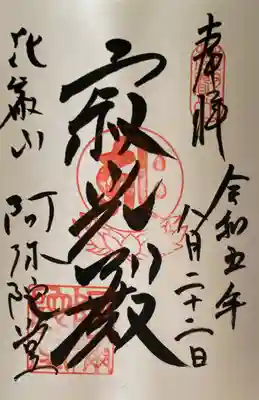 奉拝
令和五年
八月二十二日
寂光殿
比叡山 阿弥陀堂